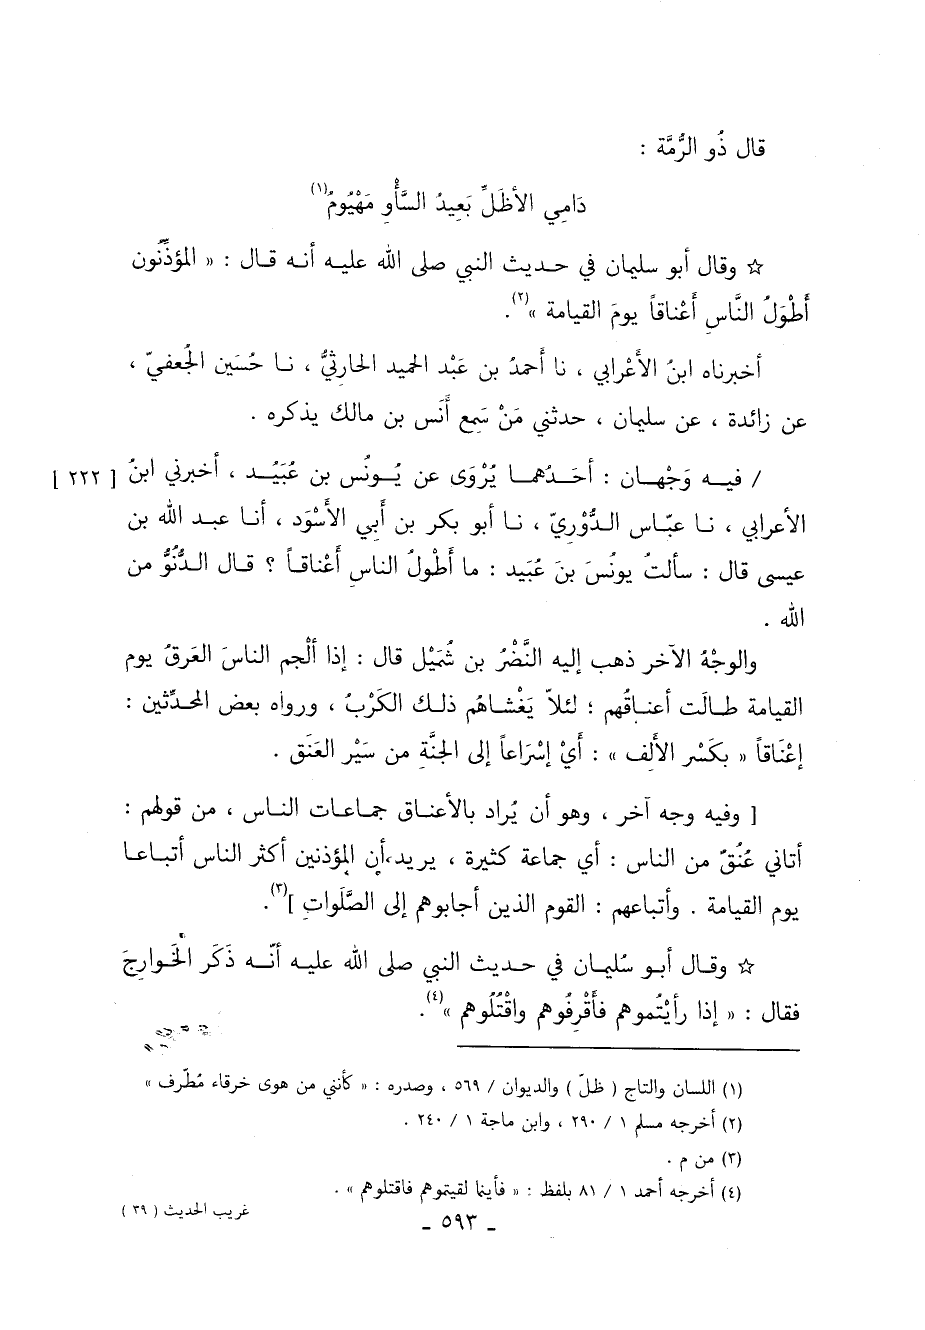 قال ذُو الرُّمَّة :
دَامِي الأظَلِّ بَعِيدُ السَّأْوِ مَهْيُومُ(١)
☆ وقال أبو سليمان في حديث النبي صلى الله عليه أنه قال : « المؤذِّنون
أَطْوَلُ النَّاسِ أَعْناقاً يومَ القيامة »(٢).
أخبرناه ابنُ الأعْرابي ، نا أَحمدُ بن عَبْد الحميد الحارثيُّ ، نا حُسَين الجُعفيّ ،
عن زائدة ، عن سليمان ، حدثني مَنْ سَمِع أَنَس بن مالك يذكره .
/ فيه وَجْهان : أحَدُهما يُرْوَى عن يُونُس بن عُبَيْد ، أخبرني ابنُ [ ٢٢٢ ]
الأعرابي ، نا عبّاس الدُّوْريّ ، نا أبو بكر بن أَبي الأَسْوَد ، أنا عبد الله بن
عيسى قال : سألتُ يونُسَ بنَ عُبَيد : ما أَطْولُ الناس أَعْناقاً ؟ قال الدُّنُوُّ من
الله .
والوجْهُ الآخر ذهب إليه النَّضْرُ بن شُمَيْل قال : إذا ألْجم الناسَ العَرقُ يوم
القيامة طالَت أعناقُهم ؛ لئلاّ يَغْشاهُم ذلك الكَرْبُ ، ورواه بعض المحدِّثين :
إعْنَاقاً « بكَسْر الأَلِف » : أَيْ إسْرَاعاً إلى الجنَّةِ من سَيْر العَنَق .
[ وفيه وجه آخر ، وهو أن يُراد بالأعناق جماعات الناس ، من قولهم :
أتاني عُنُقٌ من الناس : أي جماعة كثيرة ، يريد أن المؤذنين أكثر الناس أتباعا
يوم القيامة . وأتباعهم : القوم الذين أجابوهم إلى الصَّلَواتِ ](٣).
☆ وقال أبو سُليمان في حديث النبي صلى الله عليه أنّه ذَكَر الخَوارجَ
فقال : « إذا رأيْتُموهم فأَقْرِفُوهم واقْتُلُوهم »(٤).
(١) اللسان والتاج ( ظلّ ) والديوان / ٥٦٩ ، وصدره : « كأنني من هوى خرقاء مُطَّرف »
(٢) أخرجه مسلم ١ / ٢٩٠ ، وابن ماجة ١ / ٢٤٠ .
(٣) من م .
(٤) أخرجه أحمد ١ / ٨١ بلفظ : « فأينا لقيتموهم فاقتلوهم » .
غريب الحديث ( ٣٩ )
ـ ٥٩٣ ـ